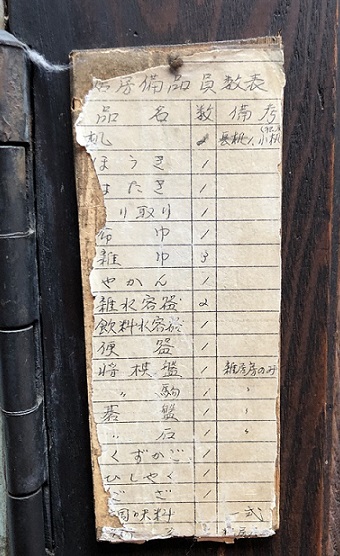 居房備品員数表
品名 数 備考
机 2 長机1、小机
ほうき 1
はたき 1
り取り 1
布巾 1
雑巾 3
やかん 1
雑水容器 2
飲料水容器 1
便器 1
将棋盤 1 雑居房のみ
〃駒 1 〃
碁盤 1 〃
〃石 1 〃
くずかご 1
ひしゃく 1
ござ 1
調味料 一式